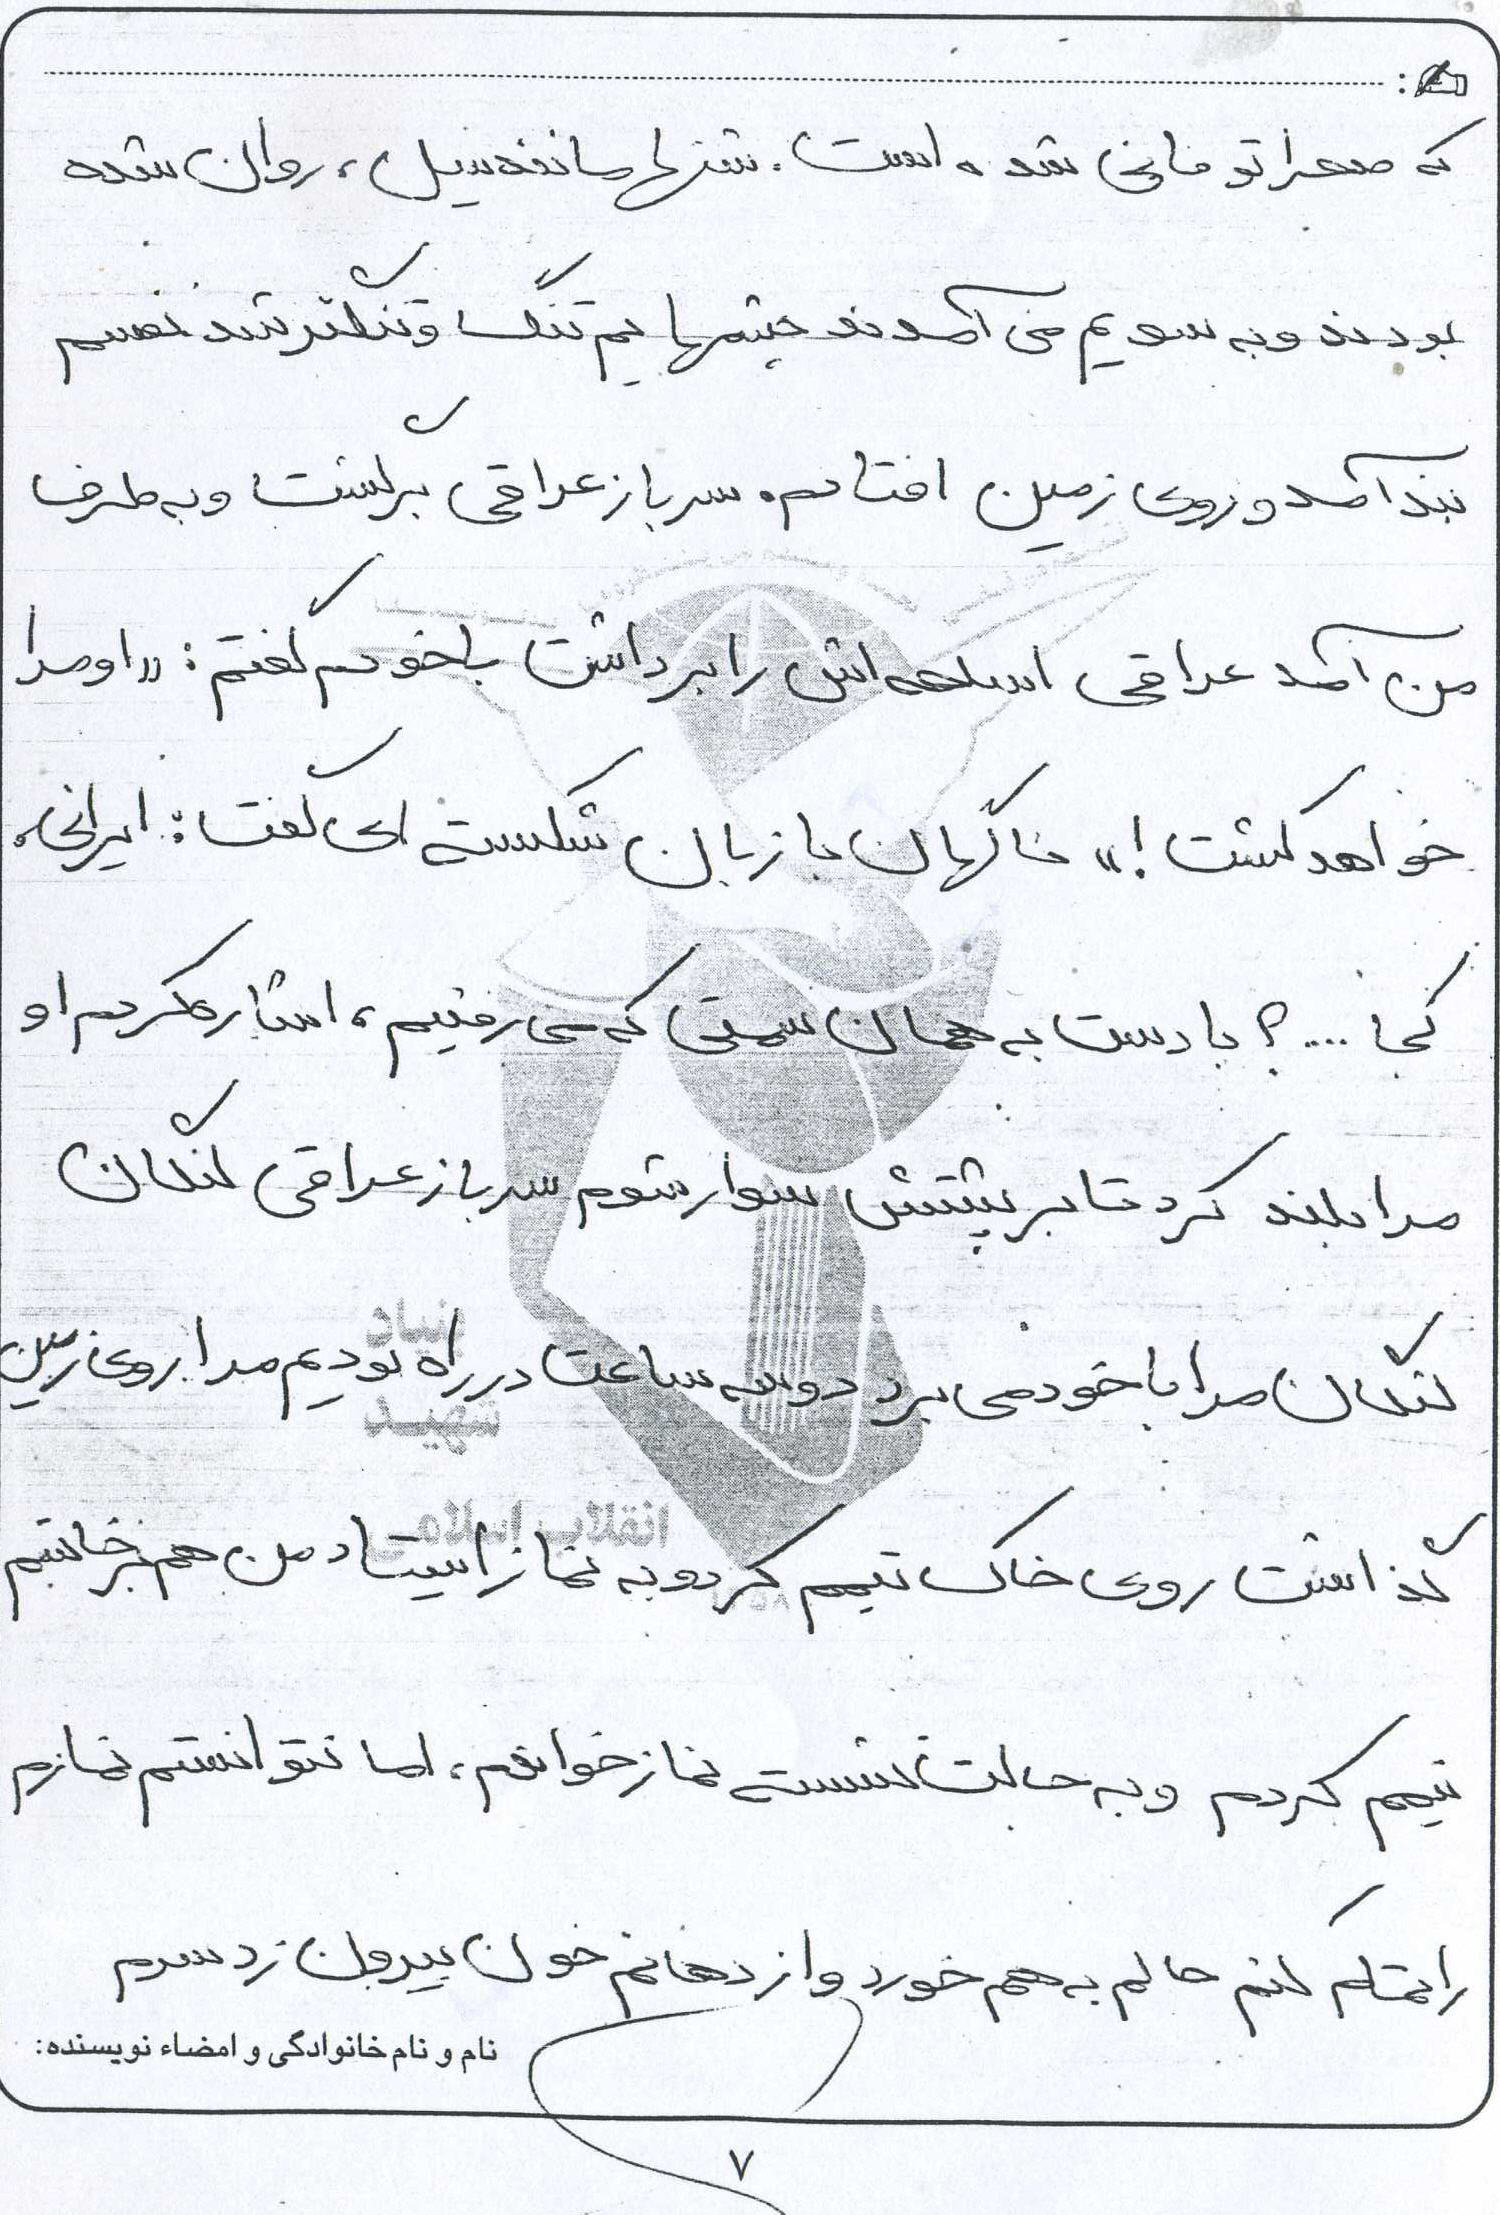 که صحرا توفانی شده است. شنها مانند سیل، روان شده
بودند و به سویم می آمدند چشمهایم تنگ و تنگتر شد نفسم
بند آمد و روی زمین افتادم. سرباز عراقی برگشت و به طرف
من آمد عراقی اسلحه اش را برداشت با خودم گفتم: «او مرا
خواهد کشت!» ناگهان با زبان شکسته ای گفت: ایرانی،
کجا ....؟ با دست به همان سمتی که می رفتیم، اشاره کردم او
مرا بلند کرد تا بر پشتش سوار شوم سرباز عراقی لنگان
لنگان مرا با خود می برد دو سه ساعت در راه بودیم مرا روی زمین
گذاشت روی خاک تیمم کرد و به نماز ایستاد من هم برخاستم
تیمم کردم و به حالت نشسته نماز خواندم، اما نتوانستم نمازم
را تمام کنم حالم به هم خورد و از دهانم خون بیرون زد سرم
نام و نام خانوادگی و امضاء نویسنده:
۷
بنیاد
شهید
انقلاب اسلامی